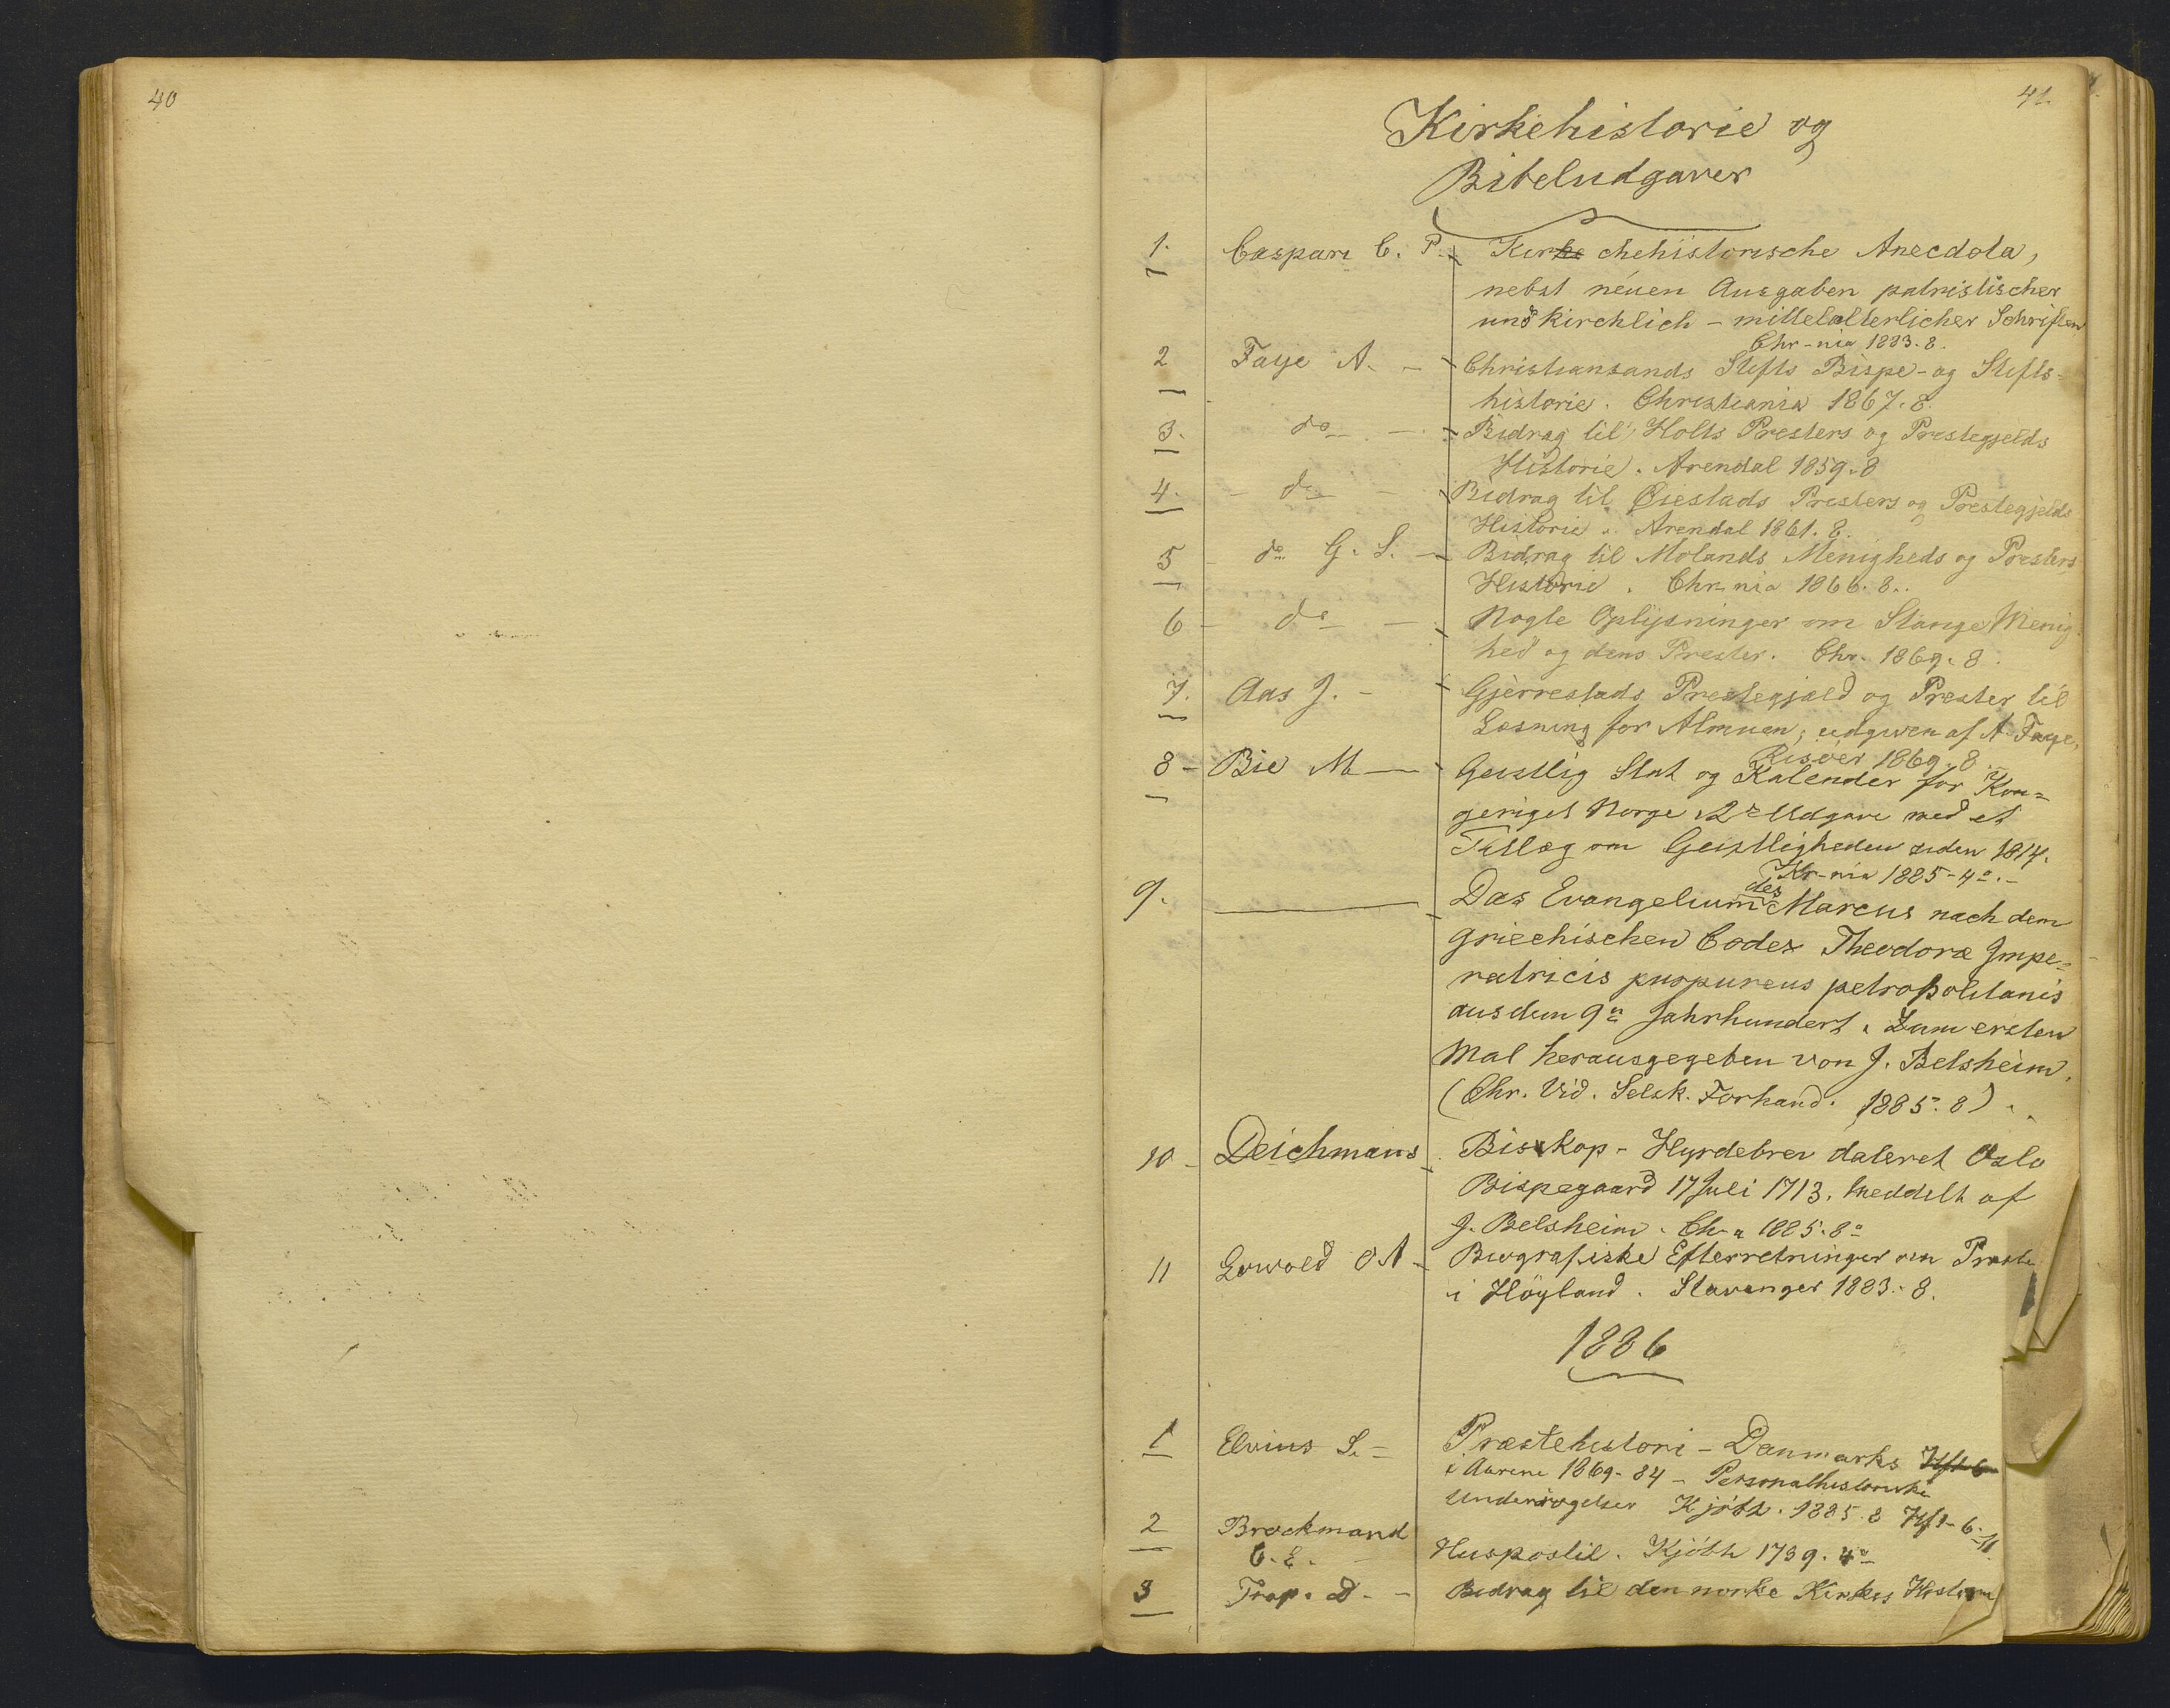 40
41.
Kirkehistorie og
Bibeludgaver
1. Caspari C. P. - Kirke chehistorische Anecdota,
nebst neuen Ausgaben patristischer
und kirchlich - mittelalterlicher Schriften
Chr-nia 1883. 8.
2 Faye A. - Christiansands Stifts Bispe- og Stifts-
historie. Christiania 1867. 8.
3. do - Bidrag til Holts Presters og Prestegjelds
Historie. Arendal 1859. 8
4. - do - Bidrag til Øiestads Presters og Prestegjelds
Historie. Arendal 1861. 8.
5 - do G. S. - Bidrag til Molands Menigheds og Presters
Historie. Chr.nia 1866. 8.
6 - do - Nogle Oplysninger om Stange Menig-
hed og dens Prester. Chr. 1869. 8.
7. Aas J. - Gjerrestads Prestegjæld og Prester til
Læsning for Almuen, udgiven af A. Faye,
Risöer 1869. 8.
8 - Bie M - Geistlig Stat og Kalender for Kon=
geriget Norge 2n Udgave med et
Tillæg om Geistligheden siden 1814.
Kr-nia 1885 - 4o. -
9. Das Evangelium des Marcus nach dem
griechischen Codex Theodoræ Impe=
ratricis purpureus petropolitanis
aus dem 9n Jahrhundert. Zum ersten
Mal herausgegeben von J. Belsheim.
(Chr. Vid. Selsk. Forhand. 1885. 8)
10 - Deichmans Biskop - Hyrdebrev dateret Oslo
Bispegaard 17 Juli 1713. Meddelt af
J. Belsheim. Chr a 1885. 8o
11 Lowold O A - Biografiske Efterretninger om Præste
i Höyland. Stavanger 1883. 8.
1886
1 Elvius S. = Præstehistori - Danmarks Hft 6
i Aarene 1869-84 - Personalhistoriske
Undersøgelser Kjöbh. 1885. 8 Hft - 6-11
2 Brockmand
C. E. - Huspostil. Kjöbh 1739. 4o
3 Trap. D. - Bidrag til den norske Kirkes Historie